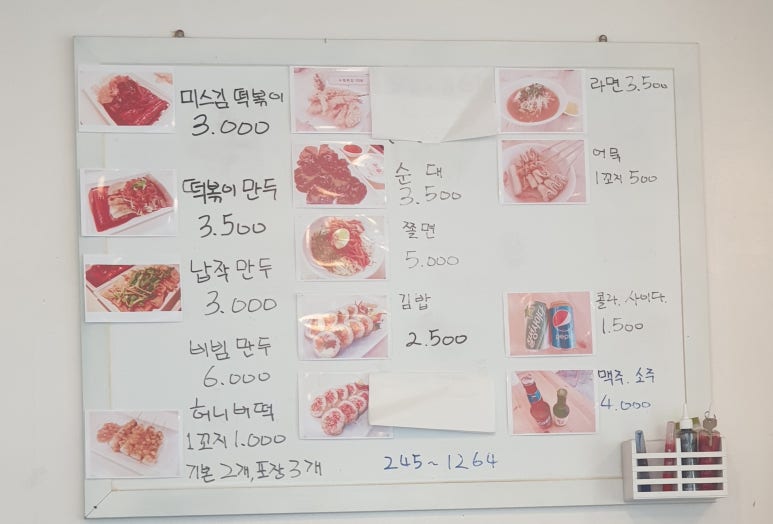 미스김 떡볶이
3.000
떡볶이 만두
3.500
납작 만두
3.000
비빔 만두
6.000
허니버떡
1꼬지 1.000
기본 2개, 포장 3개
순대
3.500
쫄면
5.000
김밥
2.500
245~1264
라면 3.500
어묵
1꼬지 500
콜라. 사이다.
1.500
pepsi
맥주. 소주
4.000